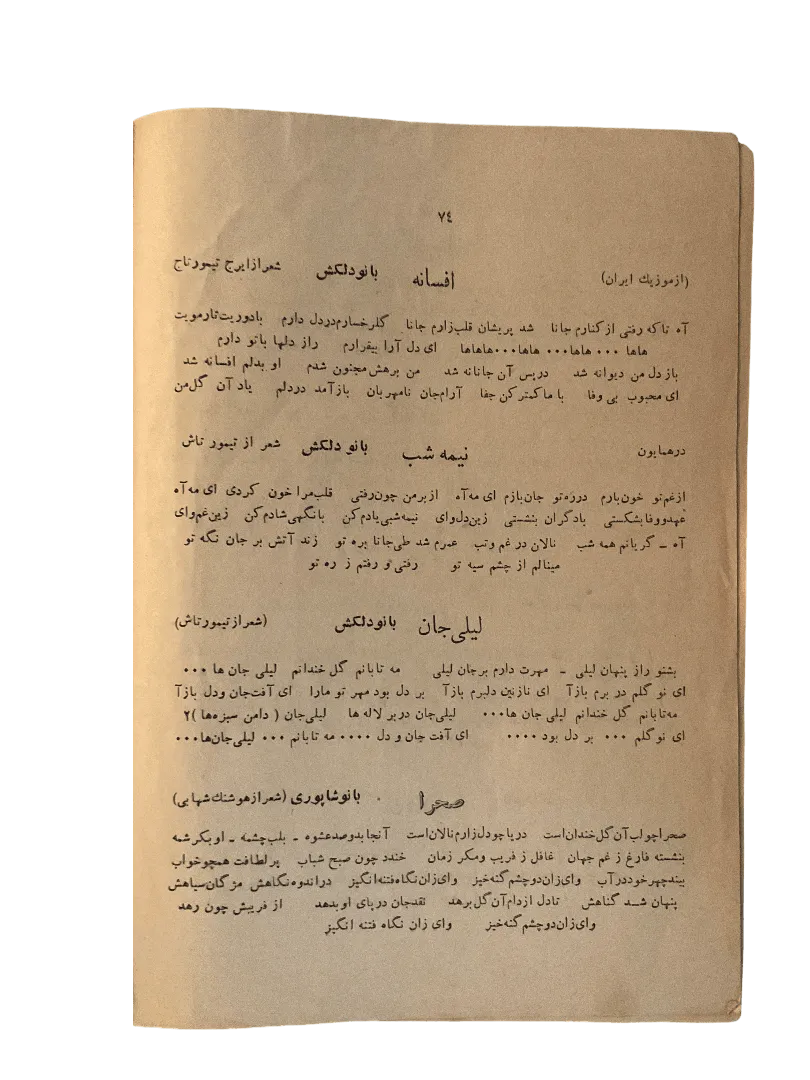 ۷٤
(ازموزیك ایران) افسانه بانودلکش شعرازایرج تیمورتاج
آه تاکه رفتی ازکنارم جانا شد پریشان قلب‌زارم جانا گلرخسارم‌دردل دارم بادوریت‌تارمویت
هاها ۰۰۰ هاها۰۰۰ هاها۰۰۰هاهاها ای دل آرا بیقرارم راز دلها باتو دارم
بازدل من دیوانه شد درپس آن جانانه شد من برهش مجنون شدم او بدلم افسانه شد
ای محبوب بی وفا با ماکمترکن جفا آرام‌جان نامهربان بازآمد دردلم یاد آن گل‌من
درهمایون نیمه شب بانودلکش شعر از تیمور تاش
ازغم‌تو خون‌بارم درره‌تو جان‌بازم ای مه‌آه ازبرمن چون‌رفتی قلب‌مرا خون کردی ای مه‌آه
عهدووفابشکستی بادگران بنشستی زین‌دل‌وای نیمه‌شبی‌یادم‌کن بانگهی‌شادم‌کن زین‌غم‌وای
آه ـ گریانم همه شب نالان در غم وتب عمرم شد طی‌جانا بره تو زند آتش بر جان نگه تو
مینالم از چشم سیه تو رفتی و رفتم ز ره تو
لیلی‌جان بانودلکش (شعرازتیمورتاش)
بشنو راز پنهان لیلی ـ مهرت دارم برجان لیلی مه تابانم گل خندانم لیلی جان ها ۰۰۰
ای نو گلم در برم بازآ ای نازنین دلبرم بازآ بر دل بود مهر تو مارا ای آفت‌جان ودل بازآ
مه‌تابانم گل خندانم لیلی جان ها۰۰۰ لیلی‌جان دربر لاله ها لیلی‌جان ( دامن سبزه‌ها )۲
ای نوگلم ۰۰۰ بر دل بود ۰۰۰۰ ای آفت جان و دل ۰۰۰۰ مه تابانم ۰۰۰ لیلی‌جان‌ها۰۰۰
صحرا بانوشاپوری (شعرازهوشنك‌شهابی)
صحراچواب‌آن‌گل‌خندان‌است دریاچودل‌زارم‌نالان‌است آنجابدوصدعشوه ـ بلب‌چشمه ـ اوبکرشمه
بنشسته فارغ ز غم جهان غافل ز فریب ومکر زمان خندد چون صبح شباب پرلطافت همچوخواب
بیندچهرخوددرآب وای‌زان‌دوچشم‌گنه‌خیز وای‌زان‌نگاه‌فتنه‌انگیز دراندوه‌نگاهش مژگان‌سیاهش
پنهان شد گناهش تادل ازدام‌آن‌گل‌برهد نقدجان درپای اوبدهد از فریبش چون رهد
وای‌زان‌دوچشم‌گنه‌خیز وای زان نگاه فتنه انگیز